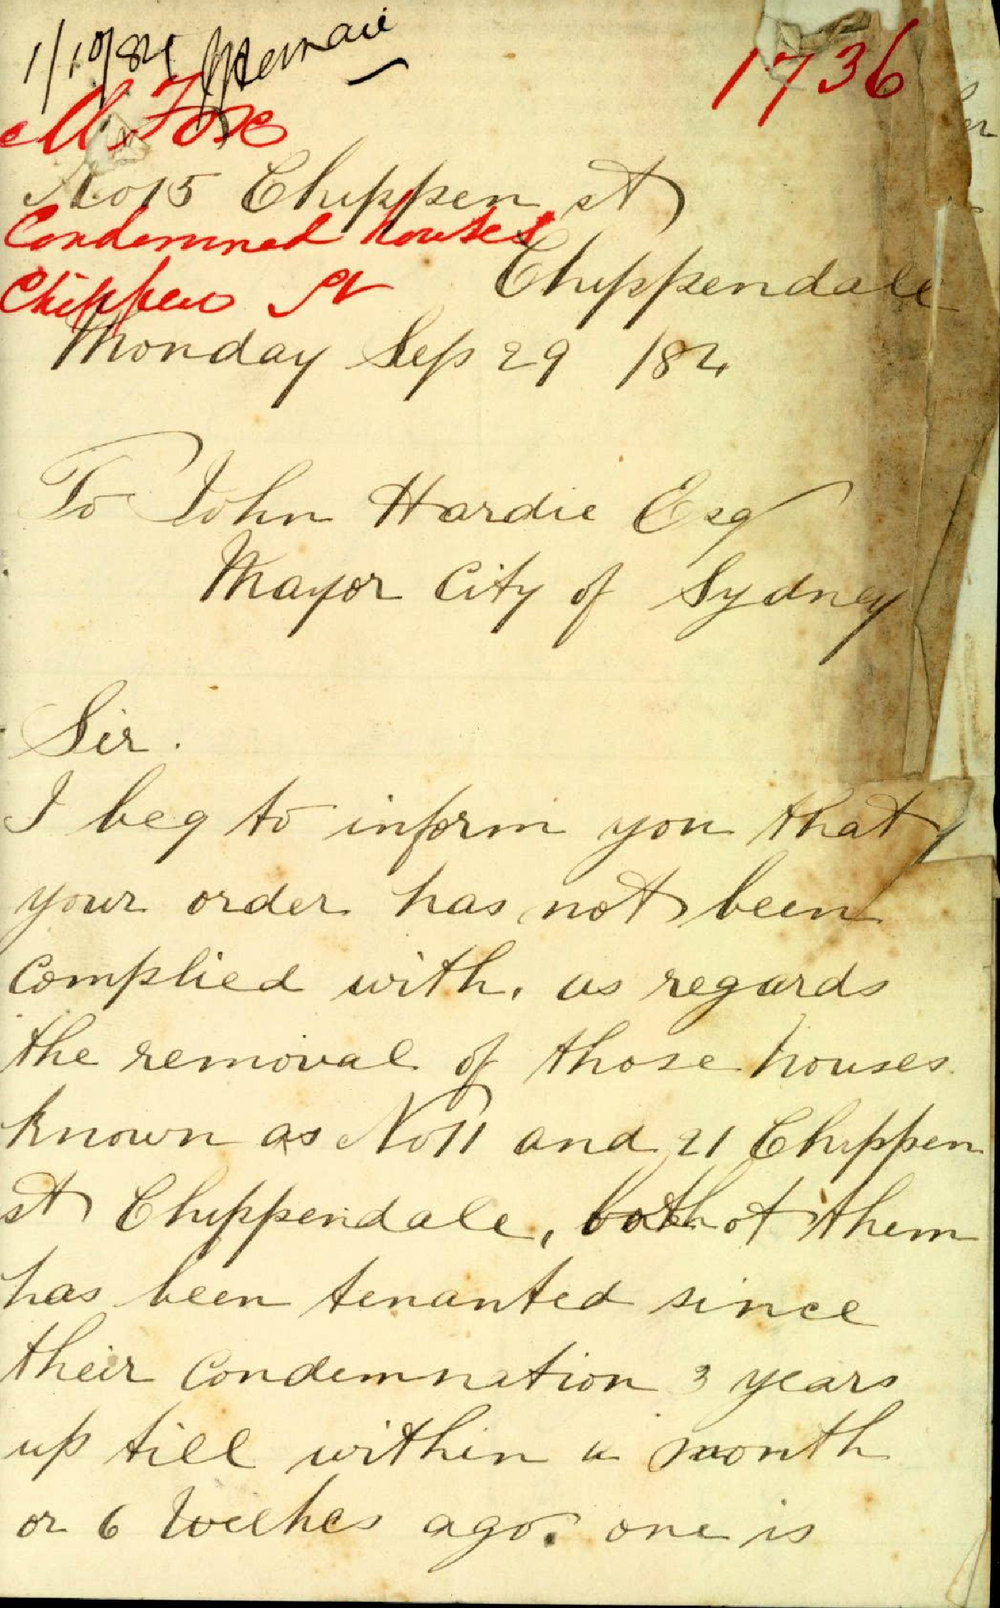 1/10/84
1736
M. Fox
No 15 Chippen st
Condemned houses
Chippendale
Chippen St
Monday Sep 29 /84
To John Hardie Esq
Mayor City of Sydney
Sir.
I beg to inform you that
your order has not been
complied with, as regards
the removal of those houses
known as No 11 and 21 Chippen
st Chippendale, both of them
has been tenanted since
their condemnation 3 years
up till within a month
or 6 weekes ago. one is